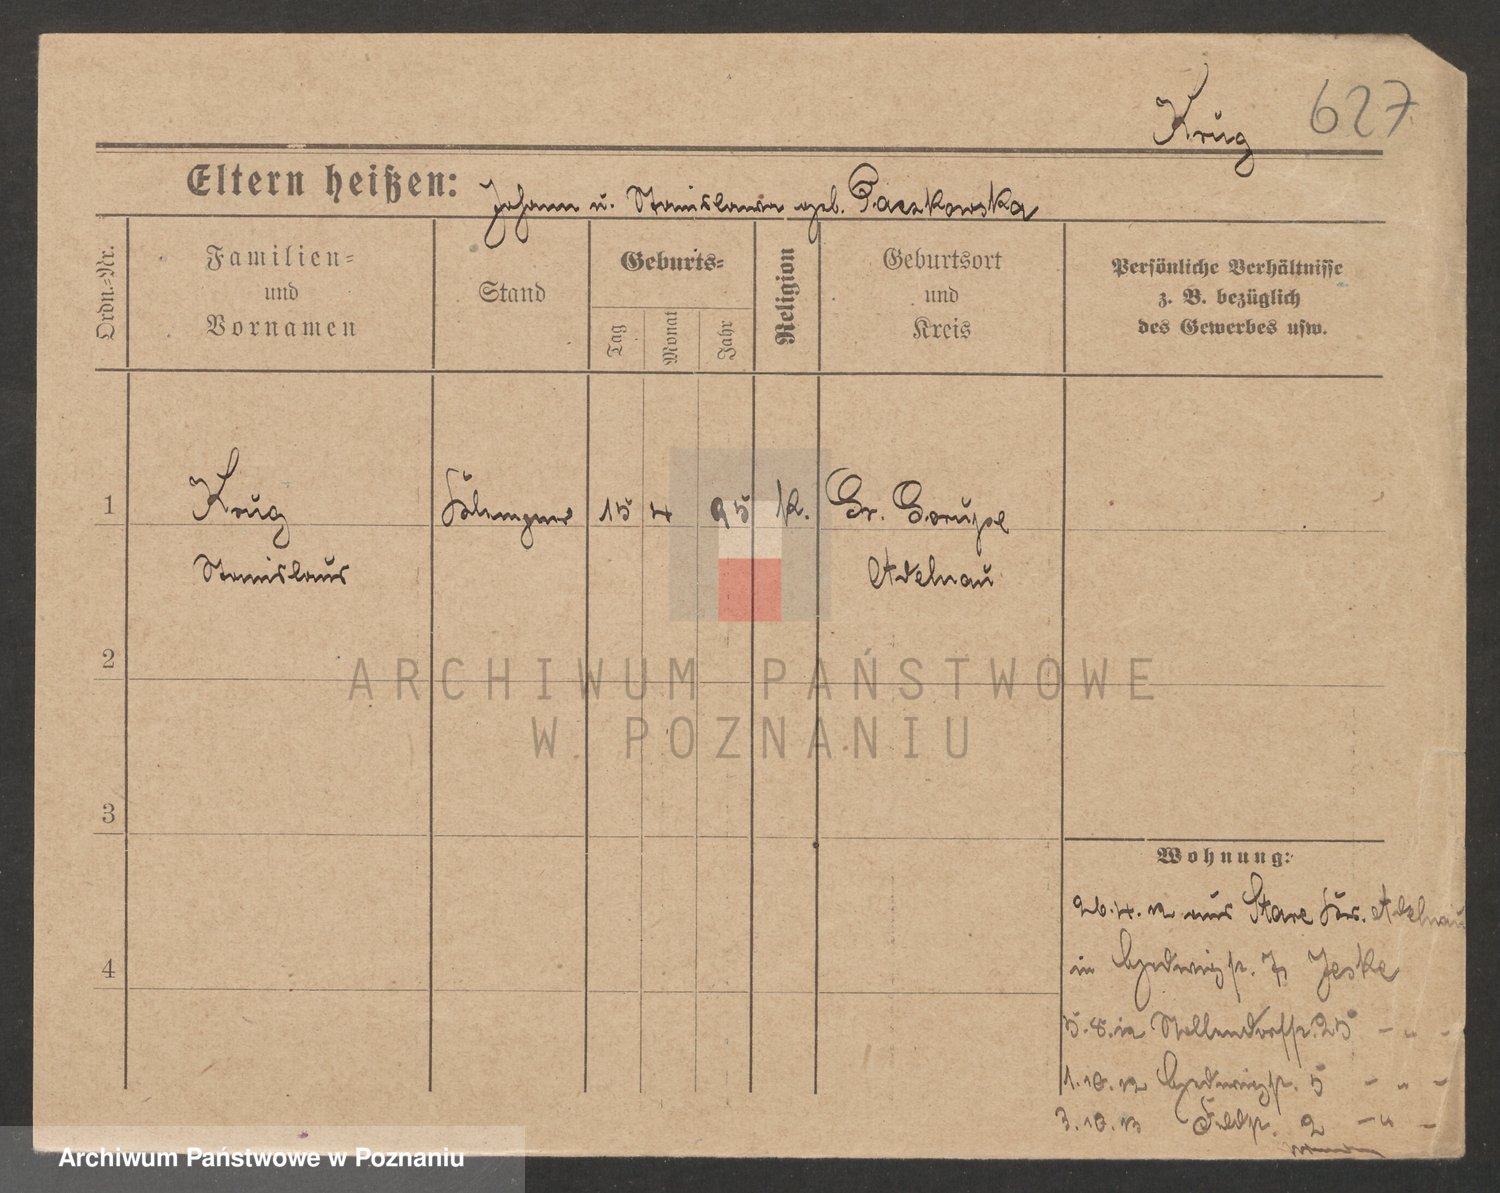 Krug 627
Eltern heißen: Johann u. Stanislawa geb. Paczkowska
Ordn.-Nr.
Familien-
und
Vornamen
Stand
Geburts-
Tag
Monat
Jahr
Religion
Geburtsort
und
Kreis
Persönliche Verhältnisse
z. B. bezüglich
des Gewerbes usw.
1 Krug 15 4 95 k. Gr.
Stanislaus Adelnau
2
ARCHIWUM PAŃSTWOWE
W POZNANIU
3
Wohnung:
26.4.12 aus Stare Krs. Adelnau
4
in Hedwigstr. 7 Jeske
5.8.12 25 - " -
1.10.12 Hedwigstr. 5 - " -
3.10.13 Feldstr. 2 - " -
Archiwum Państwowe w Poznaniu